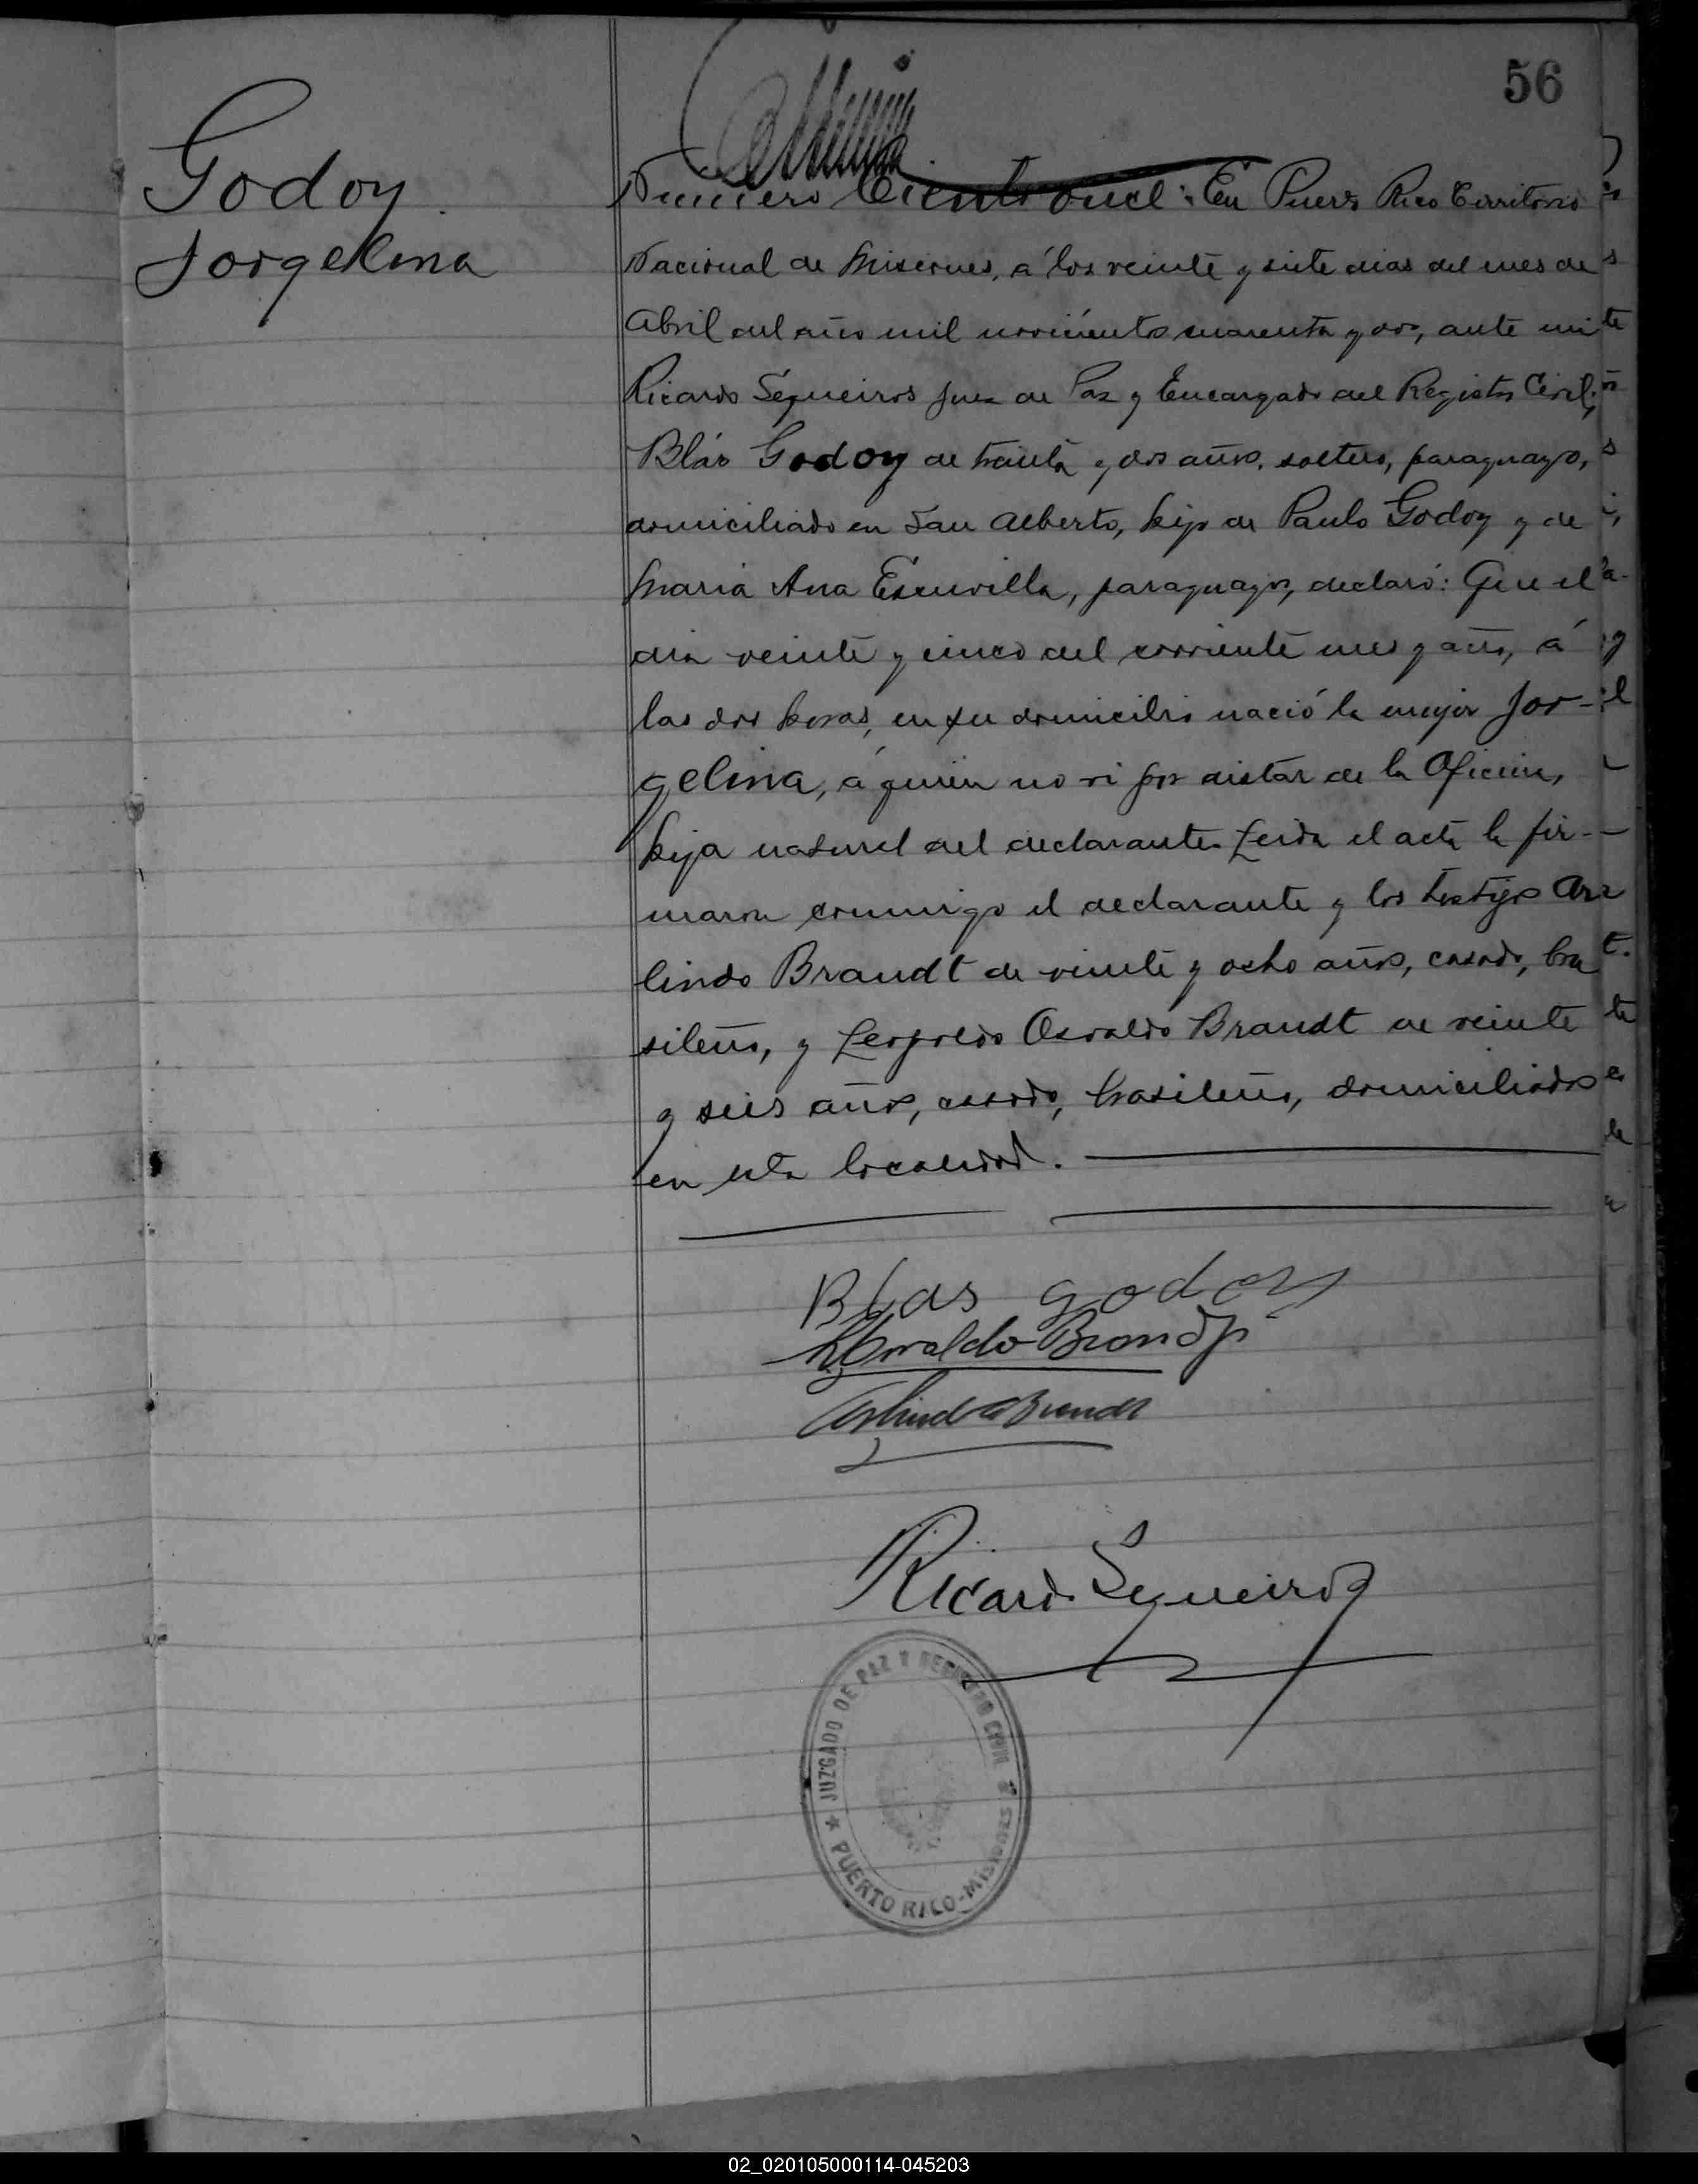 56
Godoy
Jorgelina
Numero Ciento once: En Puerto Rico Territorio
Nacional de Misiones, á los veinte y siete dias del mes de
Abril del año mil novecientos cuarenta y dos, ante mi
Ricardo Sequeiros Juez de Paz y Encargado del Registro Civil,
Blás Godoy de treinta y dos años, soltero, paraguayo,
domiciliado en San Alberto, hijo de Paulo Godoy y de
Maria Ana Escurilla, paraguayos, declaró: Que el
dia veinte y cinco del corriente mes y año, á
las dos horas, en su domicilio nació la mujer Jor-
gelina, á quien no vi por distar de la Oficina,
hija natural del declarante. Leida el acta la fir-
maron conmigo el declarante y los testigos Ar
lindo Brandt de veinte y ocho años, casado, bra
sileño, y Leopoldo Osvaldo Brandt de veinte
y seis años, casado, brasileño, domiciliados
en esta localidad.
Blas Godoy
Osvaldo Brandt
Arlindo Brandt
Ricardo Sequeiros
JUZGADO DE PAZ Y REGISTRO CIVIL
★ PUERTO RICO - MISIONES
02_020105000114-045203